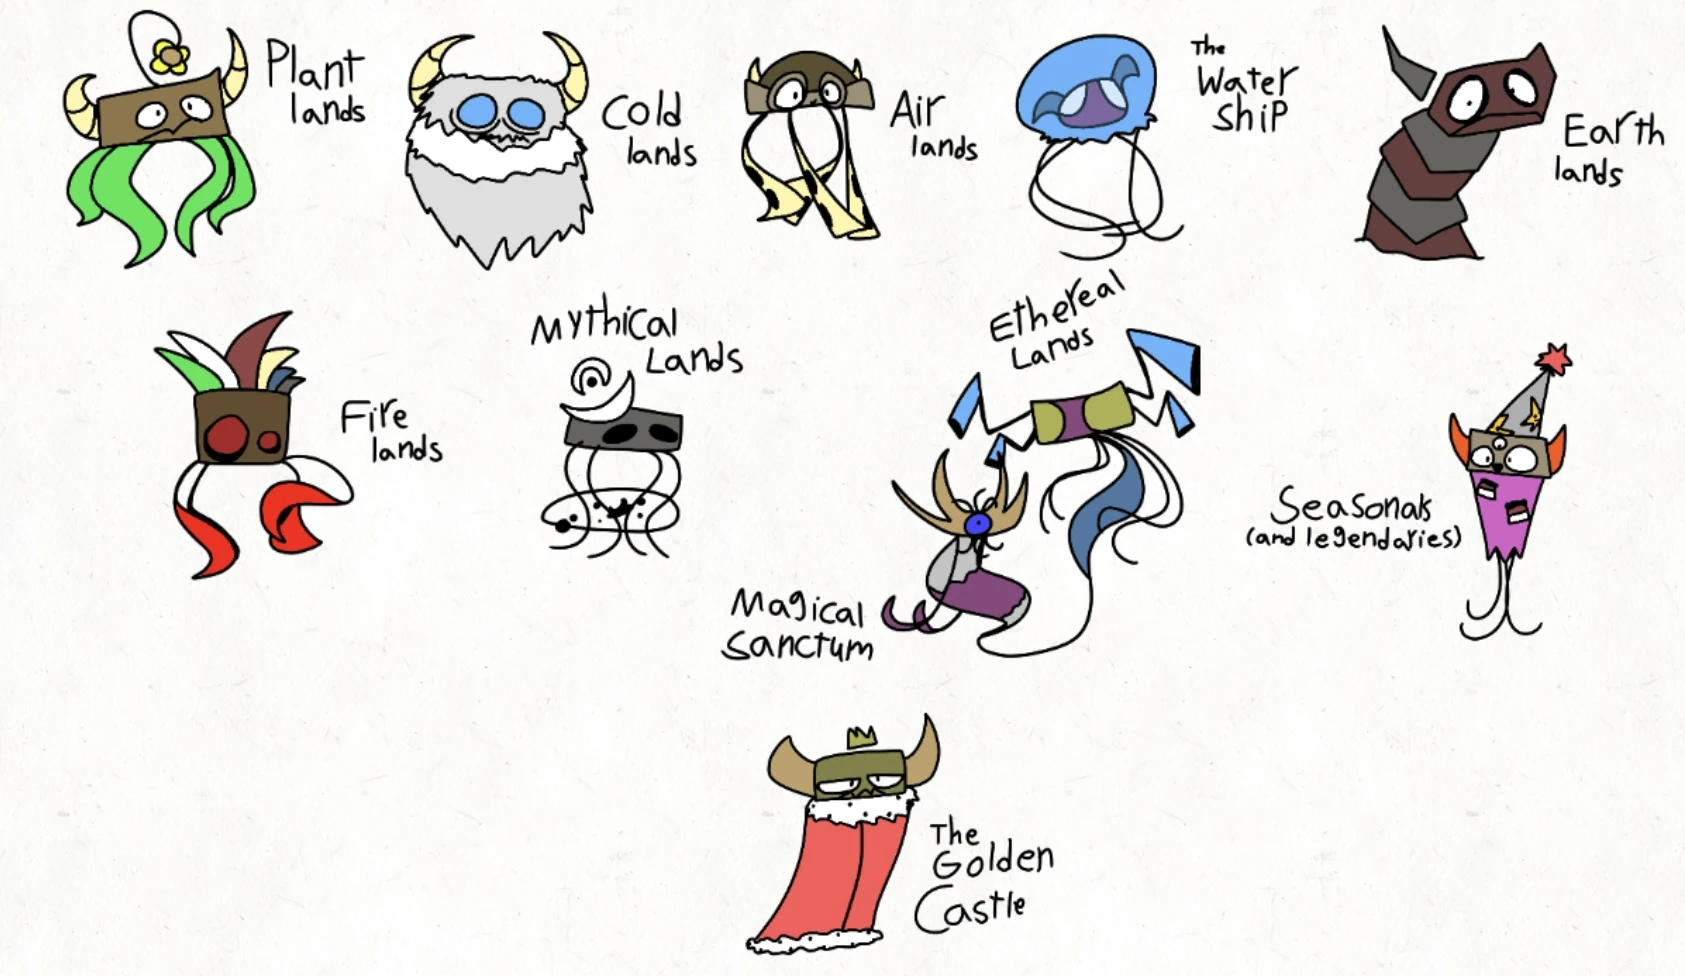 Plant
lands
Cold
lands
Air
lands
The
Water
Ship
Earth
lands
Fire
lands
Mythical
Lands
Ethereal
Lands
Magical
Sanctum
Seasonals
(and legendaries)
The
Golden
Castle